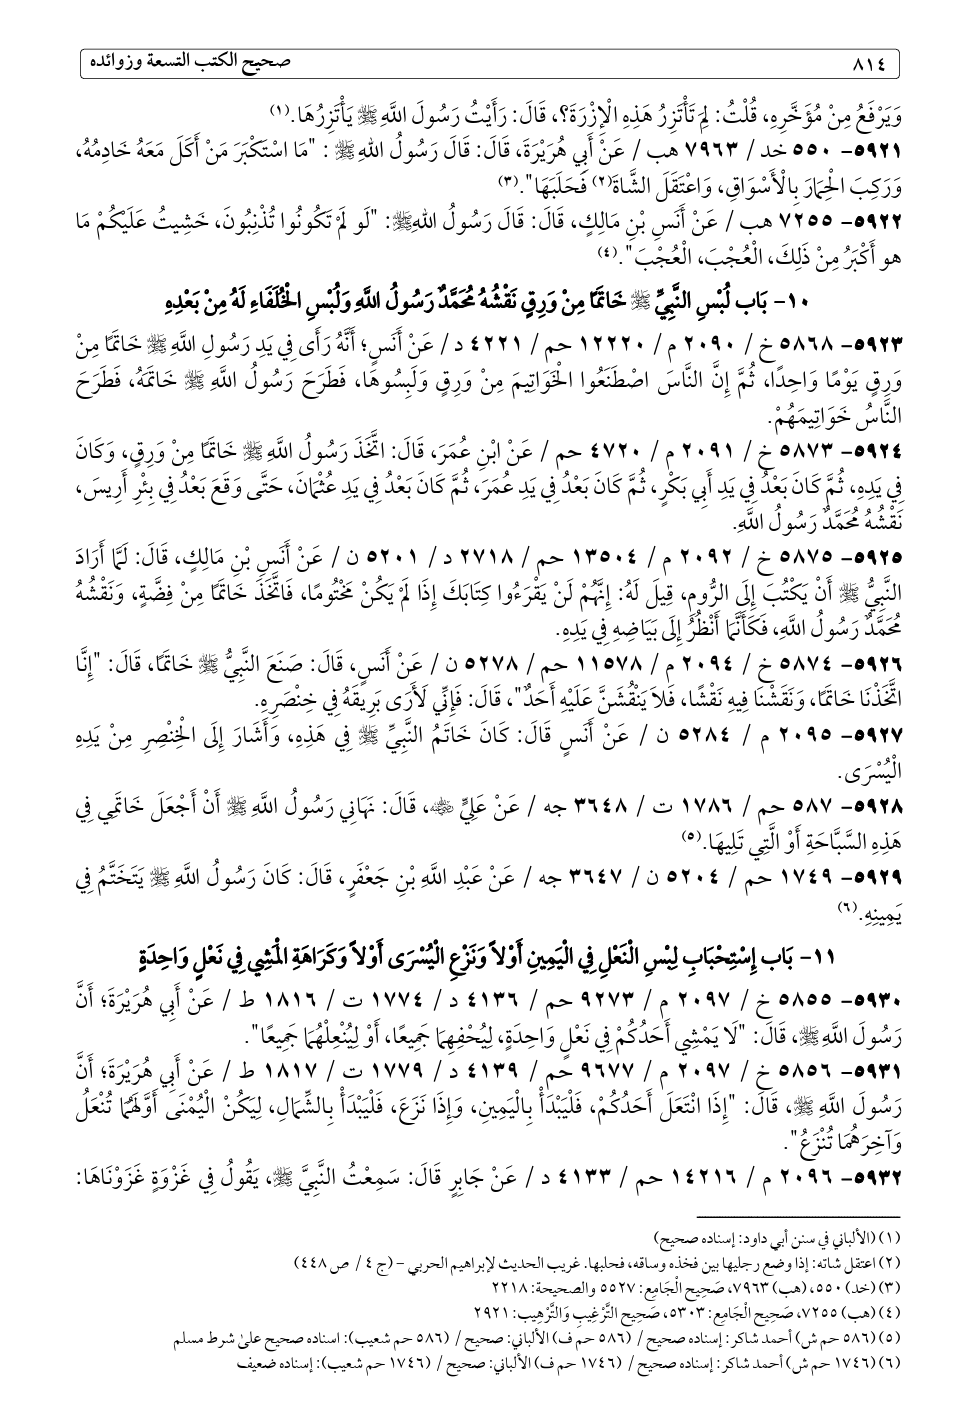 ٨١٤
صحيح الكتب التسعة وزوائده
وَيَرْفَعُ مِنْ مُؤَخَّرِهِ، قُلْتُ: لِمَ تَأْتَزِرُ هَذِهِ الْإِزْرَةَ؟، قَالَ: رَأَيْتُ رَسُولَ اللَّهِ ﷺ يَأْتَزِرُهَا.(١)
٥٩٢١- ٥٥٠ خد / ٧٩٦٣ هب / عَنْ أَبِي هُرَيْرَةَ، قَالَ: قَالَ رَسُولُ اللهِ ﷺ : "مَا اسْتَكْبَرَ مَنْ أَكَلَ مَعَهُ خَادِمُهُ،
وَرَكِبَ الْحِمَارَ بِالْأَسْوَاقِ، وَاعْتَقَلَ الشَّاةَ(٢) فَحَلَبَهَا".(٣)
٥٩٢٢- ٧٢٥٥ هب / عَنْ أَنَسِ بْنِ مَالِكٍ، قَالَ: قَالَ رَسُولُ اللهِﷺ: "لَو لَمْ تَكُونُوا تُذْنِبُونَ، خَشِيتُ عَلَيْكُمْ مَا
هو أَكْبَرُ مِنْ ذَلِكَ، الْعُجْبَ، الْعُجْبَ".(٤)
١٠- بَاب لُبْسِ النَّبِيِّ ﷺ خَاتَمًا مِنْ وَرِقٍ نَقْشُهُ مُحَمَّدٌ رَسُولُ اللَّهِ وَلُبْسِ الْخُلَفَاءِ لَهُ مِنْ بَعْدِهِ
٥٩٢٣- ٥٨٦٨ خ / ٢٠٩٠ م / ١٢٢٢٠ حم / ٤٢٢١ د / عَنْ أَنَسٍ؛ أَنَّهُ رَأَى فِي يَدِ رَسُولِ اللَّهِ ﷺ خَاتَمًا مِنْ
وَرِقٍ يَوْمًا وَاحِدًا، ثُمَّ إِنَّ النَّاسَ اصْطَنَعُوا الْخَوَاتِيمَ مِنْ وَرِقٍ وَلَبِسُوهَا، فَطَرَحَ رَسُولُ اللَّهِ ﷺ خَاتَمَهُ، فَطَرَحَ
النَّاسُ خَوَاتِيمَهُمْ.
٥٩٢٤- ٥٨٧٣ خ / ٢٠٩١ م / ٤٧٢٠ حم / عَنْ ابْنِ عُمَرَ، قَالَ: اتَّخَذَ رَسُولُ اللَّهِ ﷺ خَاتَمًا مِنْ وَرِقٍ، وَكَانَ
فِي يَدِهِ، ثُمَّ كَانَ بَعْدُ فِي يَدِ أَبِي بَكْرٍ، ثُمَّ كَانَ بَعْدُ فِي يَدِ عُمَرَ، ثُمَّ كَانَ بَعْدُ فِي يَدِ عُثْمَانَ، حَتَّى وَقَعَ بَعْدُ فِي بِئْرِ أَرِيسَ،
نَقْشُهُ مُحَمَّدٌ رَسُولُ اللَّهِ.
٥٩٢٥- ٥٨٧٥ خ / ٢٠٩٢ م / ١٣٥٠٤ حم / ٢٧١٨ د / ٥٢٠١ ن / عَنْ أَنَسِ بْنِ مَالِكٍ، قَالَ: لَمَّا أَرَادَ
النَّبِيُّ ﷺ أَنْ يَكْتُبَ إِلَى الرُّومِ، قِيلَ لَهُ: إِنَّهُمْ لَنْ يَقْرَءُوا كِتَابَكَ إِذَا لَمْ يَكُنْ مَخْتُومًا، فَاتَّخَذَ خَاتَمًا مِنْ فِضَّةٍ، وَنَقْشُهُ
مُحَمَّدٌ رَسُولُ اللَّهِ، فَكَأَنَّمَا أَنْظُرُ إِلَى بَيَاضِهِ فِي يَدِهِ.
٥٩٢٦- ٥٨٧٤ خ / ٢٠٩٤ م / ١١٥٧٨ حم / ٥٢٧٨ ن / عَنْ أَنَسٍ، قَالَ: صَنَعَ النَّبِيُّ ﷺ خَاتَمًا، قَالَ: "إِنَّا
اتَّخَذْنَا خَاتَمًا، وَنَقَشْنَا فِيهِ نَقْشًا، فَلاَ يَنْقُشَنَّ عَلَيْهِ أَحَدٌ"، قَالَ: فَإِنِّي لَأَرَى بَرِيقَهُ فِي خِنْصَرِهِ.
٥٩٢٧- ٢٠٩٥ م / ٥٢٨٤ ن / عَنْ أَنَسٍ قَالَ: كَانَ خَاتَمُ النَّبِيِّ ﷺ فِي هَذِهِ، وَأَشَارَ إِلَى الْخِنْصِرِ مِنْ يَدِهِ
الْيُسْرَى.
٥٩٢٨- ٥٨٧ حم / ١٧٨٦ ت / ٣٦٤٨ جه / عَنْ عَلِيٍّ ﷺ، قَالَ: نَهَانِي رَسُولُ اللَّهِ ﷺ أَنْ أَجْعَلَ خَاتَمِي فِي
هَذِهِ السَّبَّاحَةِ أَوْ الَّتِي تَلِيهَا.(٥)
٥٩٢٩- ١٧٤٩ حم / ٥٢٠٤ ن / ٣٦٤٧ جه / عَنْ عَبْدِ اللَّهِ بْنِ جَعْفَرٍ، قَالَ: كَانَ رَسُولُ اللَّهِ ﷺ يَتَخَتَّمُ فِي
يَمِينِهِ.(٦)
١١- بَاب إِسْتِحْبَابِ لِبْسِ النَعْلِ فِي الْيَمِينِ أَوْلاً وَنَزْعِ الْيُسْرَى أَوْلاً وَكَرَاهَةِ الْمَشِي فِي نَعْلٍ وَاحِدَةٍ
٥٩٣٠- ٥٨٥٥ خ / ٢٠٩٧ م / ٩٢٧٣ حم / ٤١٣٦ د / ١٧٧٤ ت / ١٨١٦ ط / عَنْ أَبِي هُرَيْرَةَ؛ أَنَّ
رَسُولَ اللَّهِ ﷺ، قَالَ: "لَا يَمْشِي أَحَدُكُمْ فِي نَعْلٍ وَاحِدَةٍ، لِيُحْفِهِمَا جَمِيعًا، أَوْ لِيُنْعِلْهُمَا جَمِيعًا".
٥٩٣١- ٥٨٥٦ خ / ٢٠٩٧ م / ٩٦٧٧ حم / ٤١٣٩ د / ١٧٧٩ ت / ١٨١٧ ط / عَنْ أَبِي هُرَيْرَةَ؛ أَنَّ
رَسُولَ اللَّهِ ﷺ، قَالَ: "إِذَا انْتَعَلَ أَحَدُكُمْ، فَلْيَبْدَأْ بِالْيَمِينِ، وَإِذَا نَزَعَ، فَلْيَبْدَأْ بِالشِّمَالِ، لِيَكُنْ الْيُمْنَى أَوَّلَهُمَا تُنْعَلُ
وَآخِرَهُمَا تُنْزَعُ".
٥٩٣٢- ٢٠٩٦ م / ١٤٢١٦ حم / ٤١٣٣ د / عَنْ جَابِرٍ قَالَ: سَمِعْتُ النَّبِيَّ ﷺ، يَقُولُ فِي غَزْوَةٍ غَزَوْنَاهَا:
(١) (الألباني في سنن أبي داود: إسناده صحيح)
(٢) اعتقل شاته: إذا وضع رجليها بين فخذه وساقه، فحلبها. غريب الحديث لإبراهيم الحربي – (ج ٤ / ص ٤٤٨)
(٣) (خد) ٥٥٠، (هب) ٧٩٦٣، صَحِيح الْجَامِع: ٥٥٢٧ والصحيحة: ٢٢١٨
(٤) (هب) ٧٢٥٥، صَحِيح الْجَامِع: ٥٣٠٣، صَحِيح التَّرْغِيبِ وَالتَّرْهِيب: ٢٩٢١
(٥) (٥٨٦ حم ش) أحمد شاكر: إسناده صحيح / (٥٨٦ حم ف) الألباني: صحيح / (٥٨٦ حم شعيب): اسناده صحيح على شرط مسلم
(٦) (١٧٤٦ حم ش) أحمد شاكر: إسناده صحيح / (١٧٤٦ حم ف) الألباني: صحيح / (١٧٤٦ حم شعيب): إسناده ضعيف